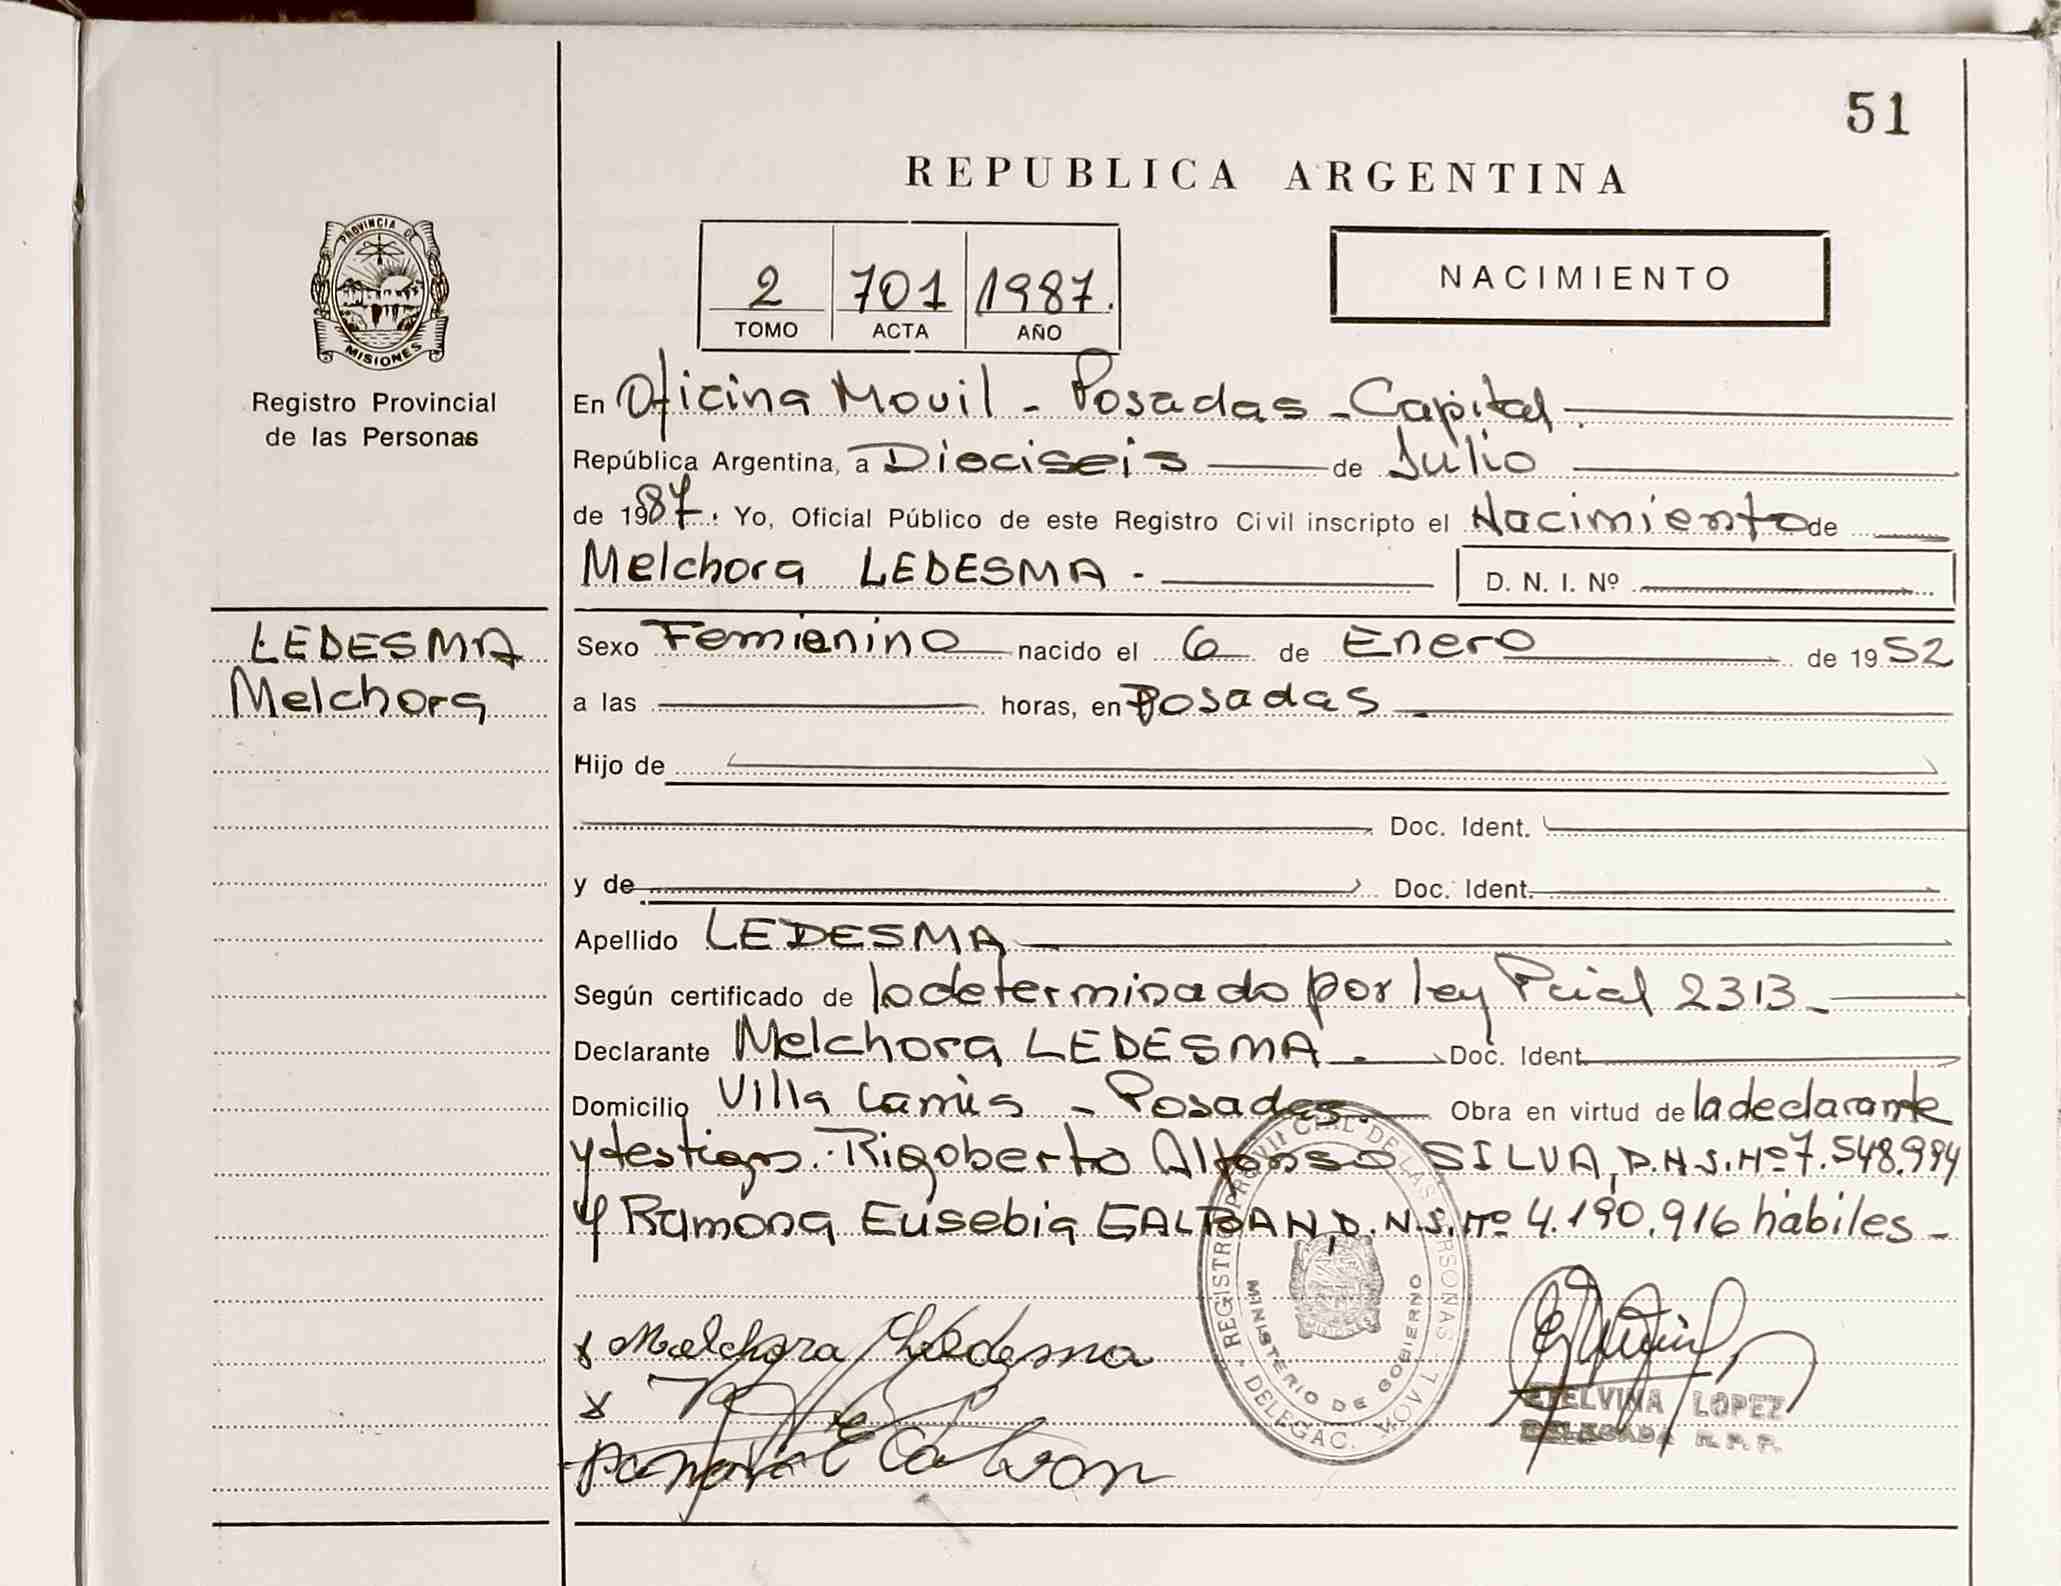 51
REPUBLICA ARGENTINA
PROVINCIA DE
MISIONES
Registro Provincial
de las Personas
2 701 1987.
TOMO ACTA AÑO
NACIMIENTO
En Oficina Movil - Posadas - Capital.
República Argentina, a Dieciseis de Julio
de 1987. Yo, Oficial Público de este Registro Civil inscripto el Nacimiento de
Melchora LEDESMA - D. N. I. Nº
LEDESMA
Melchora
Sexo Femienino nacido el 6 de Enero de 1952
a las horas, en Posadas
Hijo de
Doc. Ident.
y de Doc. Ident.
Apellido LEDESMA
Según certificado de lo determinado por ley Pcial 2313 -
Declarante Melchora LEDESMA - Doc. Ident.
Domicilio Villa - Posadas. Obra en virtud de la declarante
y testigos. Rigoberto Alfonso SILVA, D.N.I. Nº 7.548.994
y Ramona Eusebia D.N.I. Nº 4.190.916 hábiles -
REGISTRO PROVINCIAL DE LAS PERSONAS
MINISTERIO DE GOBIERNO
DELEGAC. MOVIL
x Melchora Ledesma
x
Ramona E
ETELVINA LOPEZ
DELEGADA R. P. P.